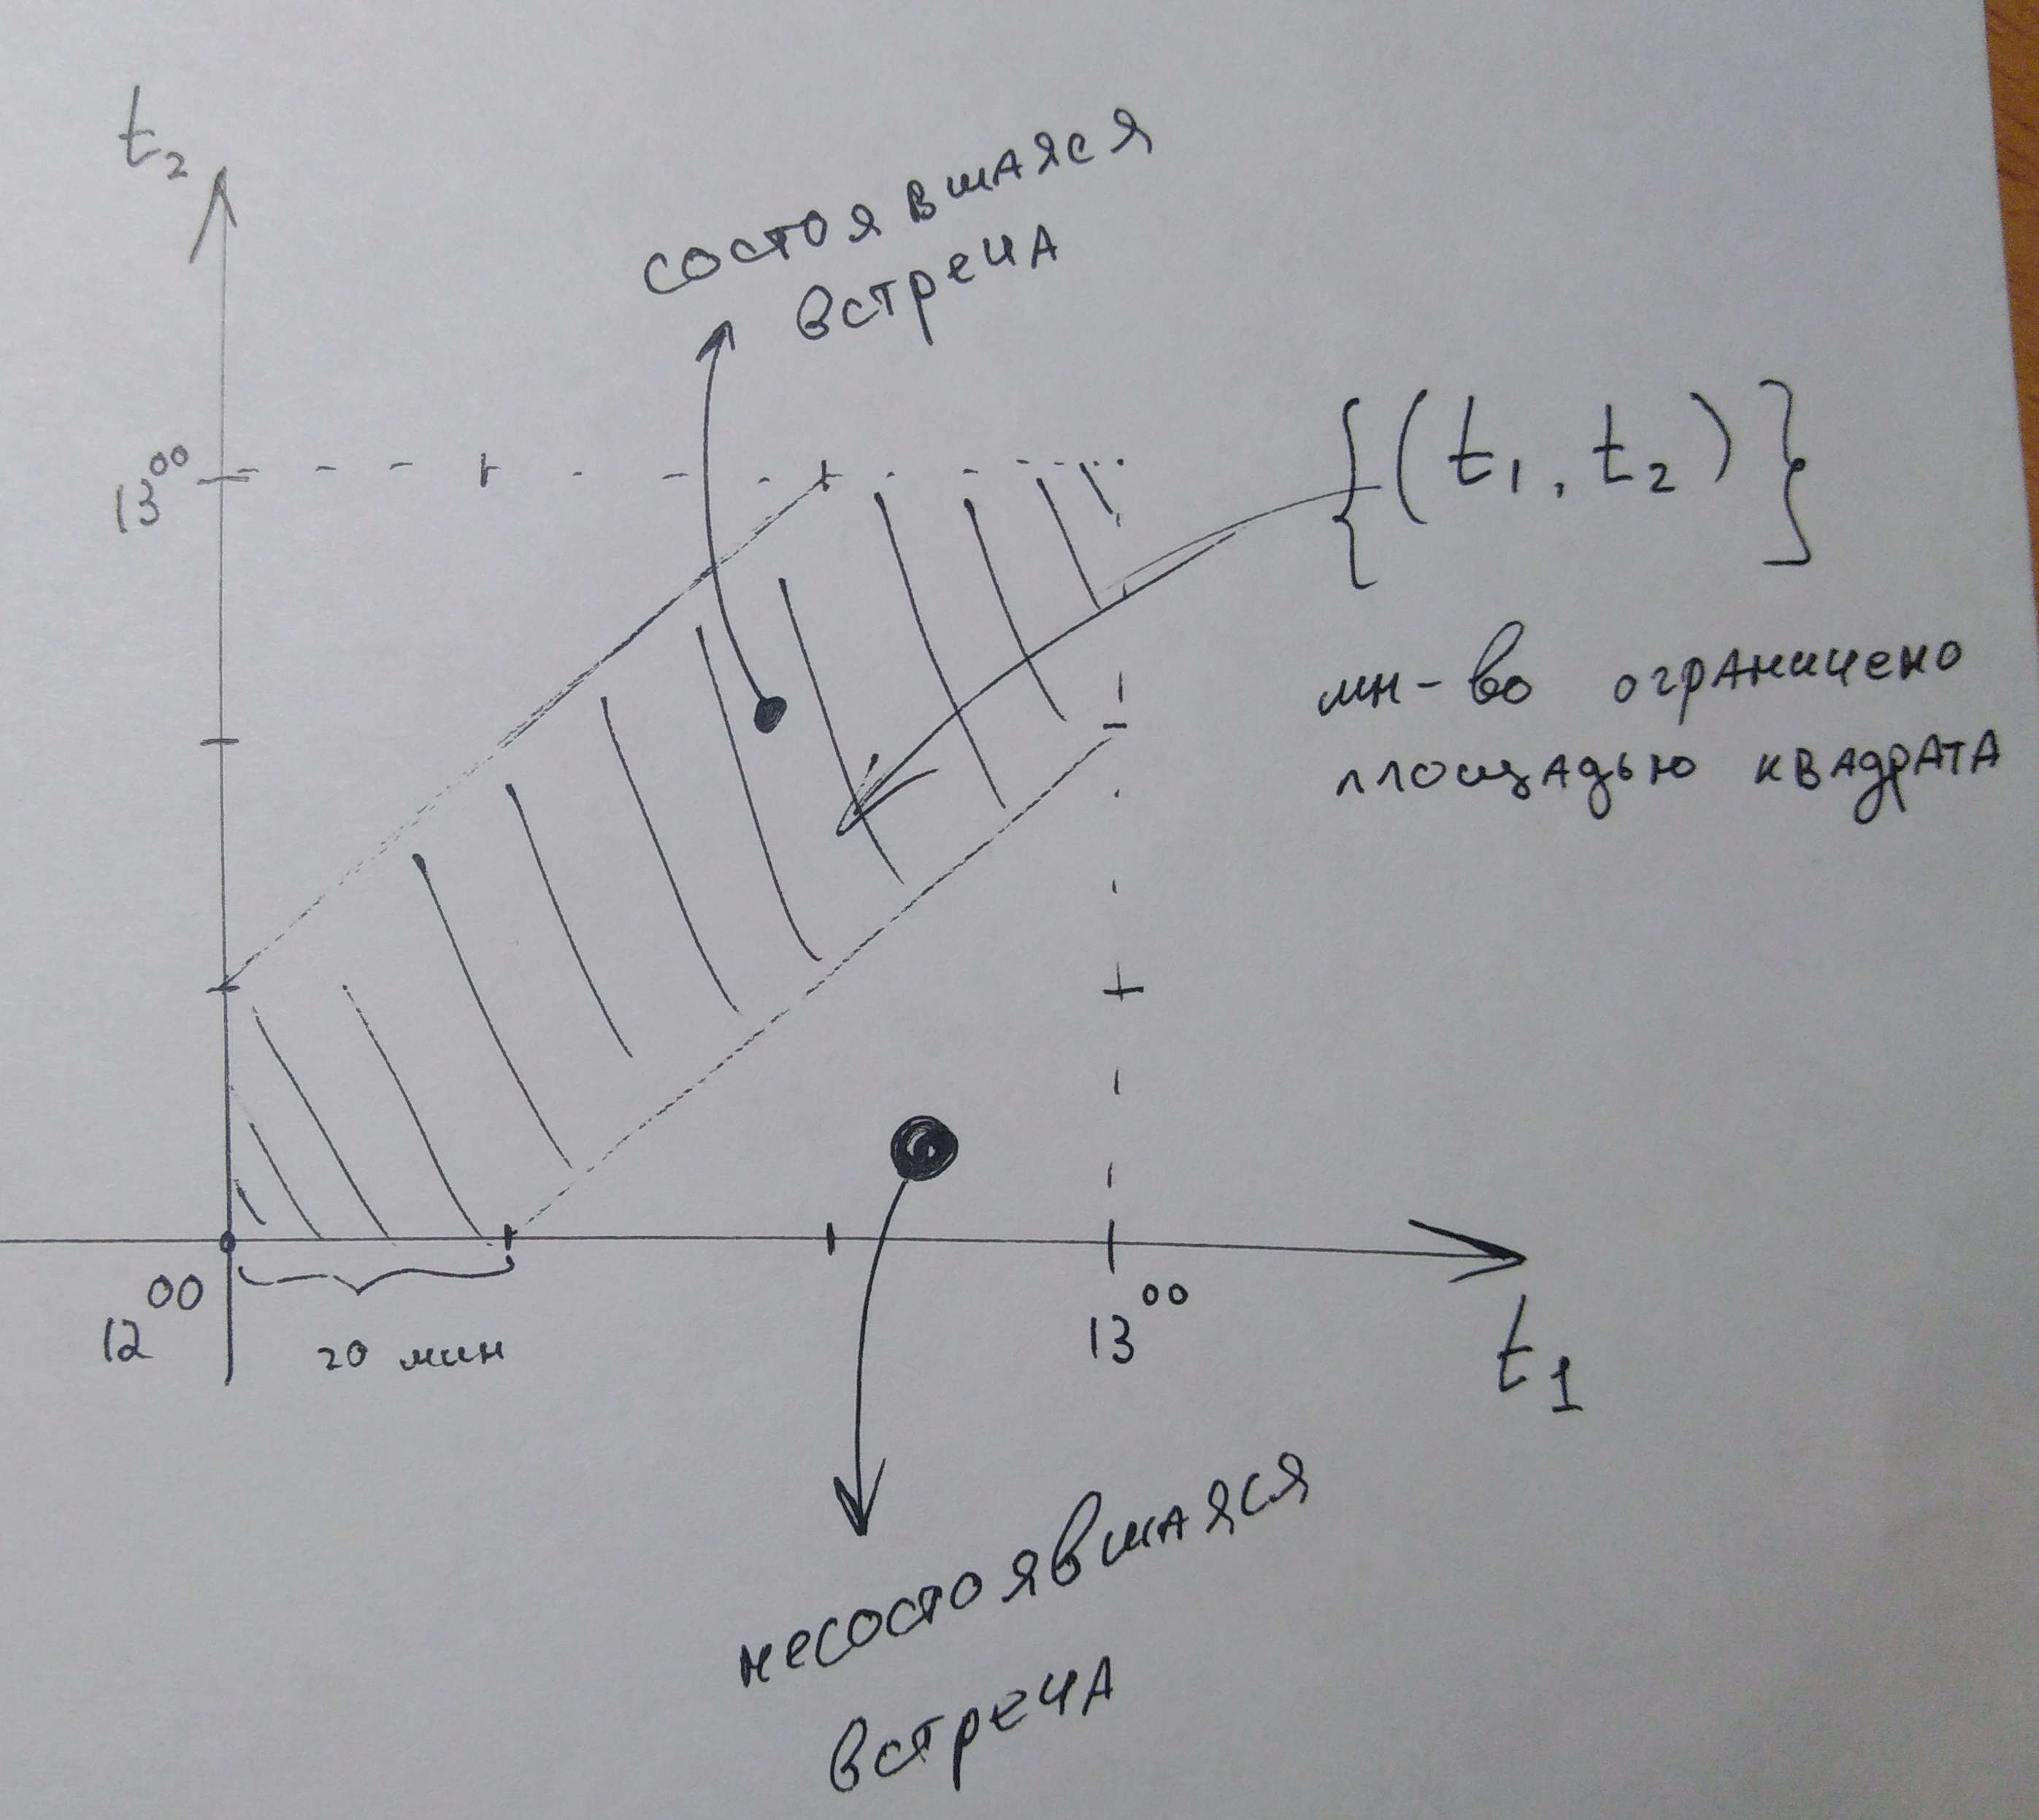 t₂
состоявшаяся
встреча
13⁰⁰
{(t₁, t₂)}
мн-во ограничено
площадью квадрата
12⁰⁰
20 мин
13⁰⁰
t₁
несостоявшаяся
встреча